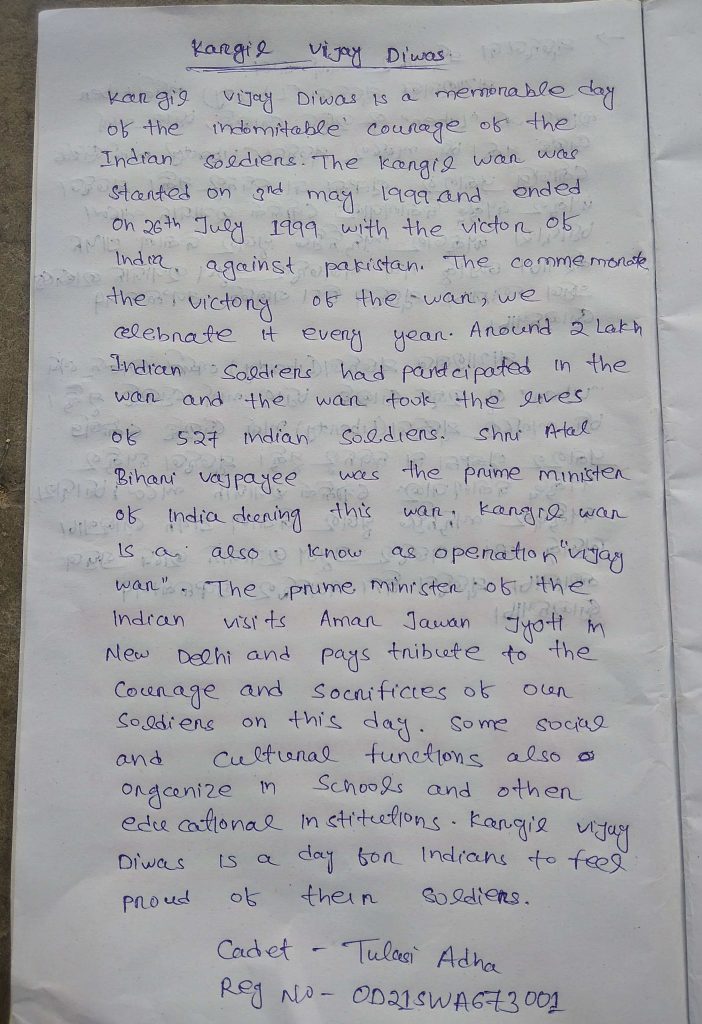 Kargil Vijay Diwas
Kargil Vijay Diwas is a memorable day
of the indomitable courage of the
Indian Soldiers. The Kargil war was
started on 3rd may 1999 and ended
on 26th July 1999 with the victor of
India against pakistan. The commemorate
the victory of the war, we
celebrate it every year. Around 2 Lakh
Indian Soldiers had participated in the
war and the war took the lives
of 527 indian soldiers. Shri Atal
Bihari vajpayee was the prime minister
of India during this war. Kargil war
is a also know as operation "vijay
war". The prime minister of the
Indian visits Amar Jawan Jyoti in
New Delhi and pays tribute to the
Courage and socrificies of our
Soldiers on this day. Some social
and cultural functions also
organize in Schools and other
educational institutions. Kargil vijay
Diwas is a day for Indians to feel
proud of their soldiers.
Cadet - Tulasi Adha
Reg No - OD21SWA673001